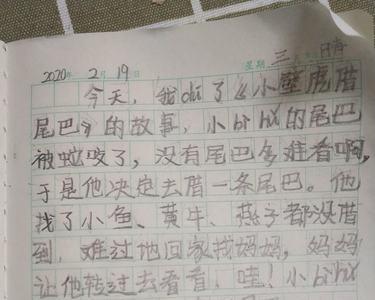 2020年 2月 19日 星期 三 晴
今天，我du了《小壁虎借
尾巴》的故事，小bì hǔ的尾巴
被蛇咬了，没有尾巴多难看啊，
于是他决定去借一条尾巴。他
找了小鱼、黄牛、燕子都没借
到，难过地回家找妈妈，妈妈
让他转过去看看，哇！小bì hǔ